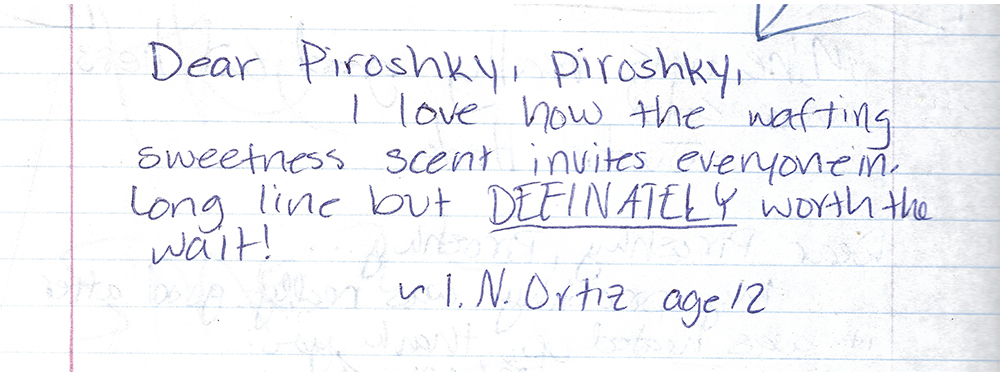 Dear Piroshky, Piroshky,
I love how the wafting
sweetness scent invites everyone in.
Long line but DEFINATELY worth the
wait!
~ I. N. Ortiz age 12